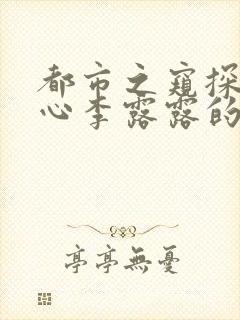 都市之窥探
心李露露的
亭亭無憂